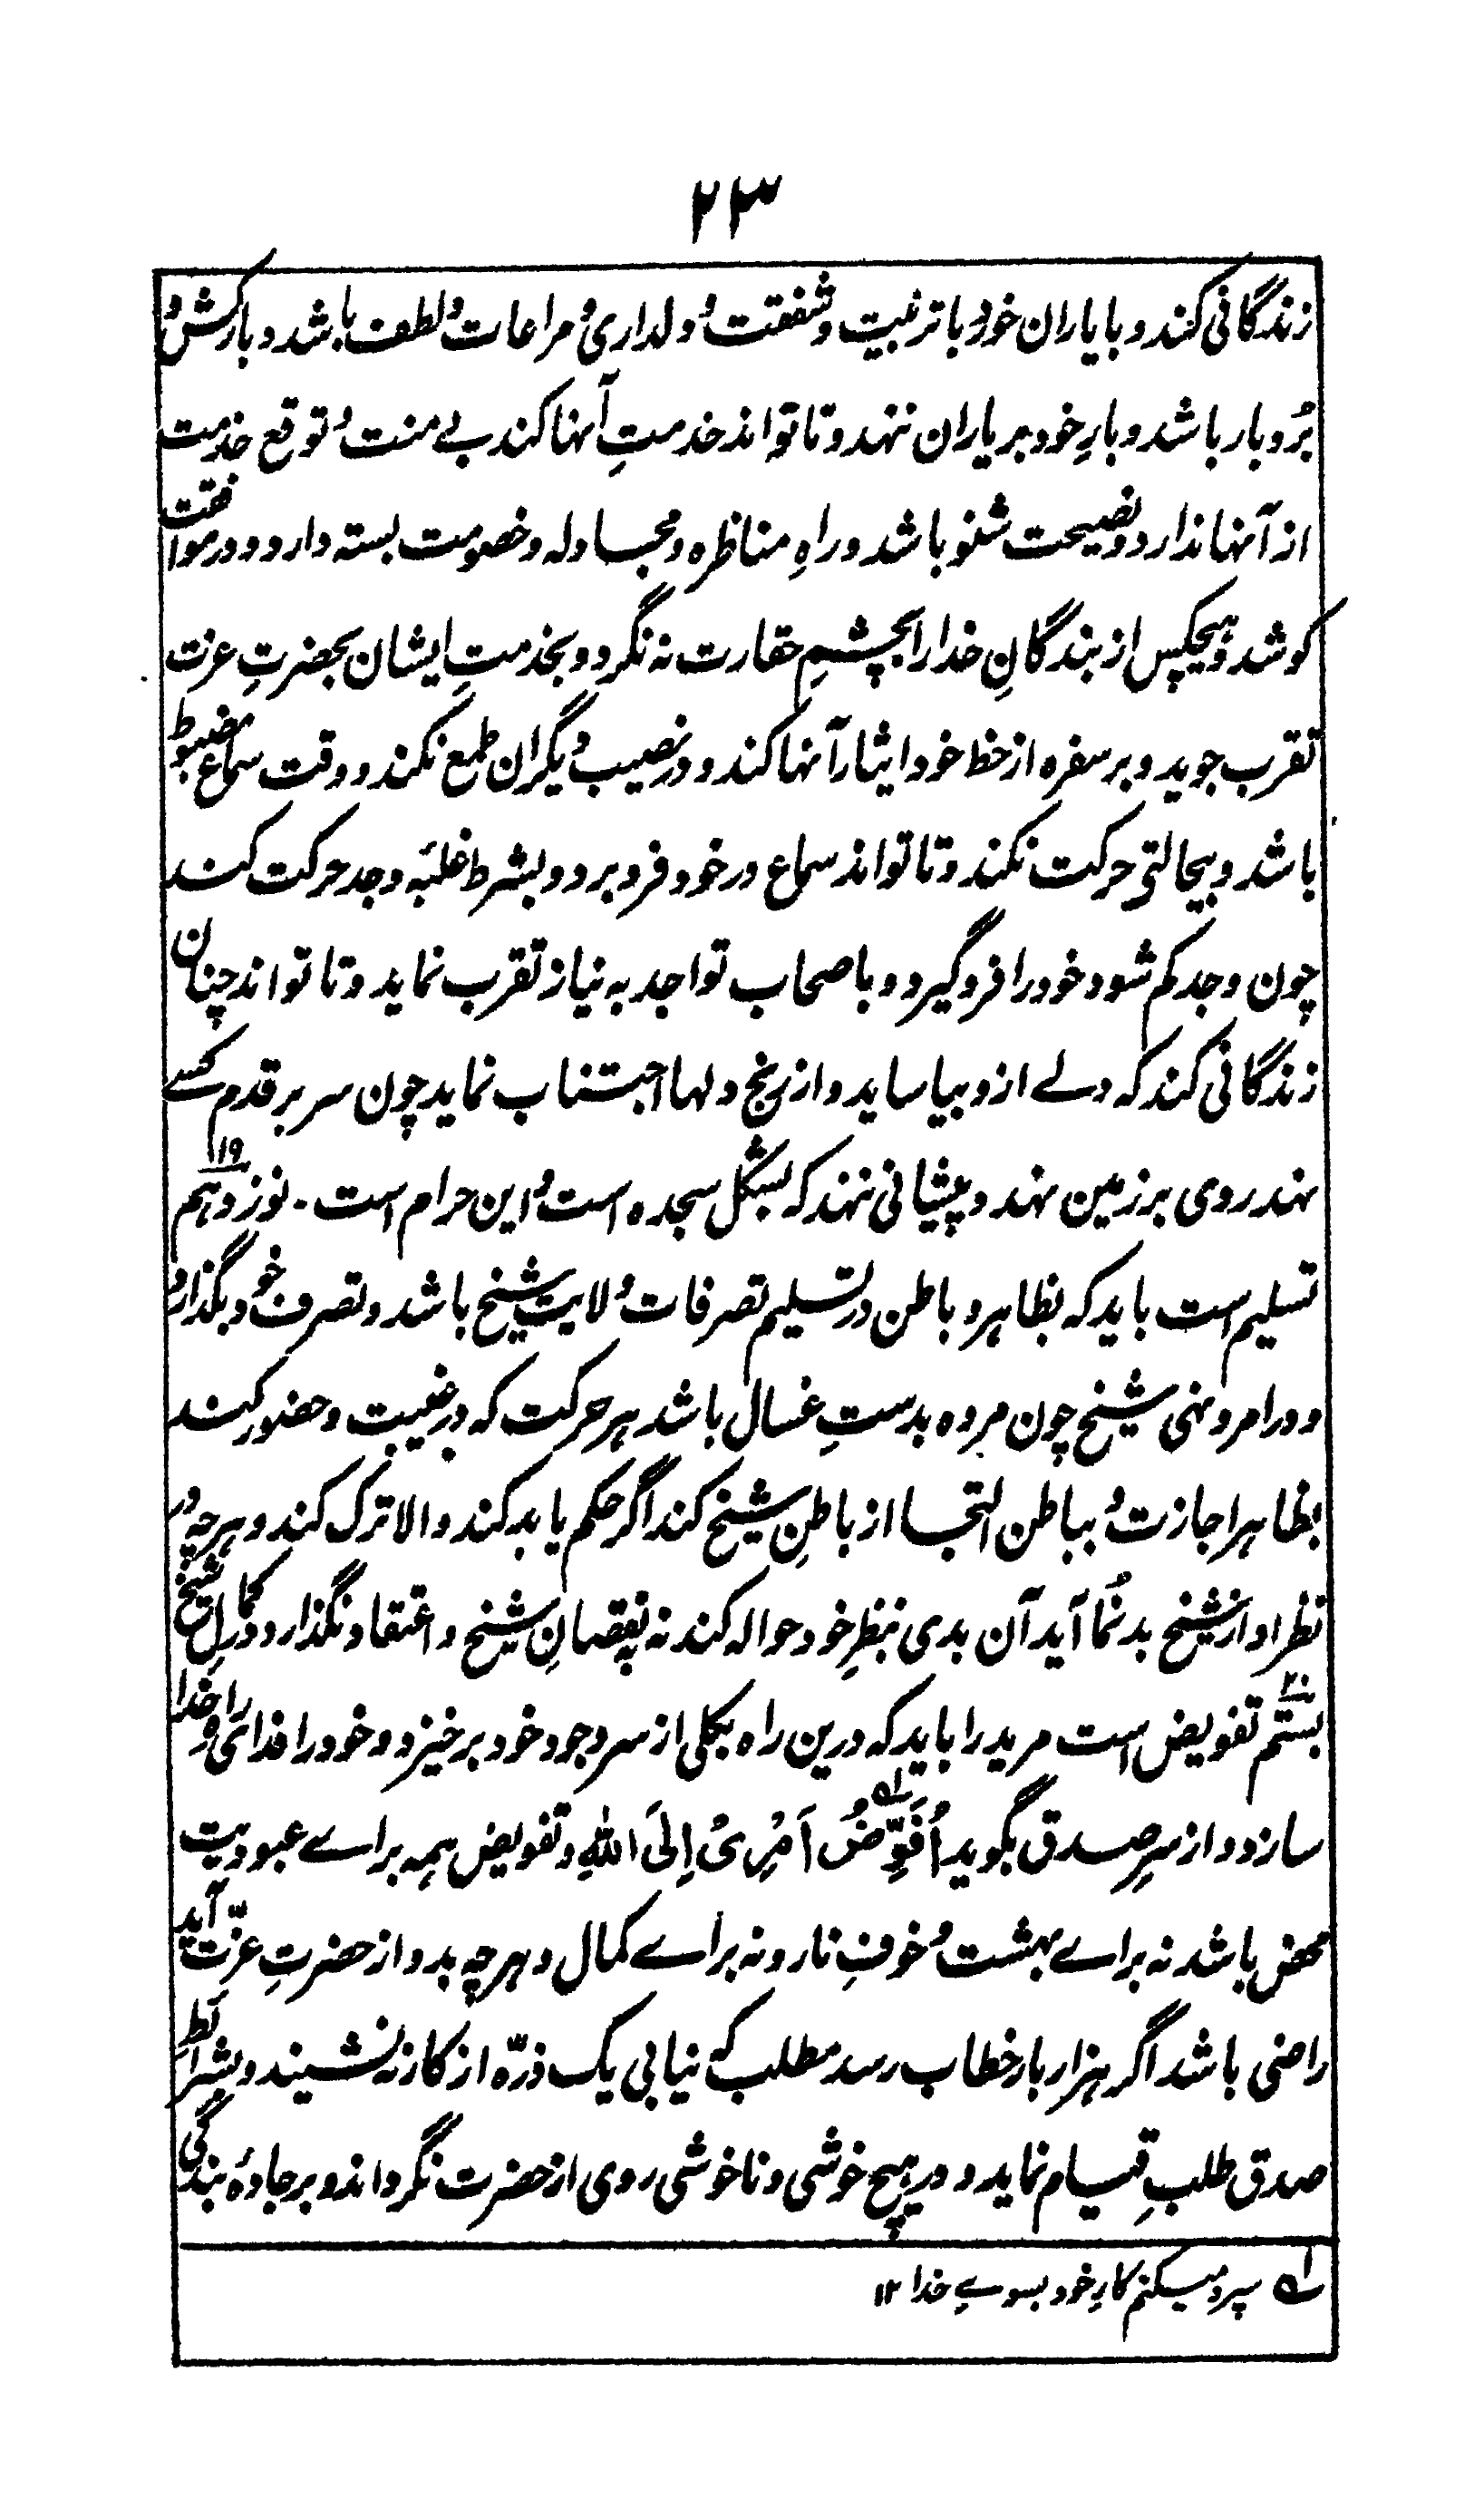 ۲۳
زندگانی کند و با یاران خود با تربیت و شفقت و دلداری و مراعات و لطف باشد و بارکش و
بُردبار باشد و بارِ خود بر یاران ننهد و تا تواند خدمتِ آنها کند بے منت و توقع خدمت
از آنها ندارد و نصیحت شنو باشد و راهِ مناظره و مجادله و خصومت بسته دارد و در موافقت
کوشد و هیچکس از بندگانِ خدا را بچشمِ حقارت نه نگرد و بخدمتِ ایشان بحضرتِ عزت
تقرب جوید و بر سفره از حظ خود ایثار آنها کند و در نصیب دیگران طمع نکند و وقت سماع مضبوط
باشد و بیحالتی حرکت نکند و تا تواند سماع در خود فرو برد و بشرط غلبۀ وجد حرکت کند
چون وجد کم شود خود را فرو گیرد و با صحاب تواجد به نیاز تقرب نماید و تا تواند چنان
زندگانی کند که دلے ازو بیاساید و از رنج دلها اجتناب نماید چون سر بر قدم کسے
نهد روی بر زمین نهد و پیشانی ننهد که بشکل سجده است و این حرام است ۔ نوزدهم ۱۹
تسلیم است باید که بظاهر و باطن در تسلیم تصرفات ولایت شیخ باشد و تصرف خود بگذارد
و در امر و نهی شیخ چون مرده بدستِ غسال باشد هر حرکت که در غیبت و حضور کند
بظاهر اجازت و بباطن التجا از باطنِ شیخ کند اگر حکم یابد کند و الا ترک کند و هرچه در
نظر او از شیخ بد نُما آید آن بدی بنظرِ خود حواله کند نه بنقصانِ شیخ و اعتقاد نگذارد در کمالِ شیخ
بستم ۲۰ تفویض است مرید را باید که درین راه بکلی از سر وجود خود برخیزد و خود را فدای راه خدا
سازد و از سرِ صدق بگوید اُفَوِّضُ اَمْرِیْ اِلیَ اللّٰهِ و تفویض همه براے عبودیت
محض باشد نه براے بهشت و خوفِ نار و نه براے کمال و هرچه بدو از حضرتِ عزّت آید
راضی باشد اگر هزار بار خطاب رسد مطلب که نیابی یک ذرّه از کار نه نشیند و بشرائط
صدق طلبِ قیام نماید و در هیچ خوشی و ناخوشی روی از حضرت نگرداند و بر جادۀ بندگی
لے سپرد میکنم کارِ خود بسوے خدا ۱۲